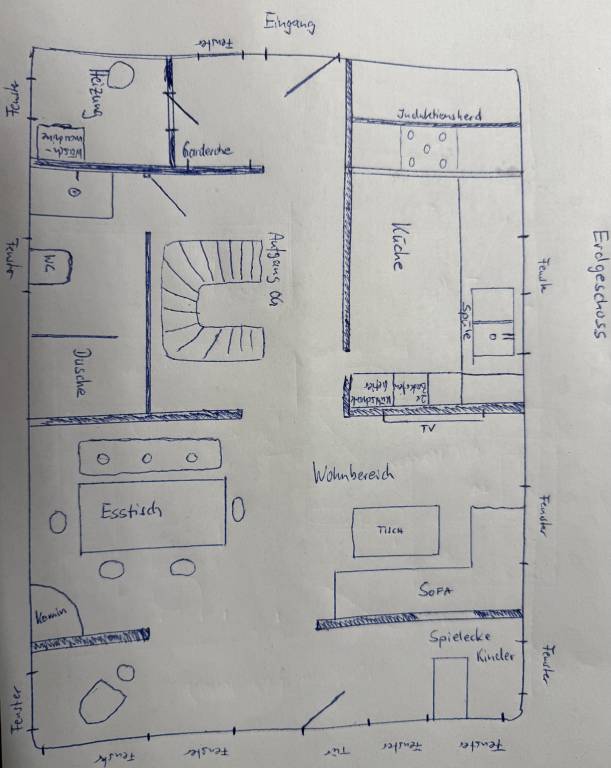 Eingang
Fenster
Erdgeschoss
Fenstr
Heizung
Wasch-
maschine
Garderobe
Induktionsherd
Küche
Fenstr
Aufgang OG
Fenster
WC
Dusche
Spüle
Kühlschrank
TV
Wohnbereich
Esstisch
TISCH
SOFA
Fenster
Kamin
Spielecke
Kinder
Fenster
Fenster
Fenster
Fenster
Tür
Fenster
Fenster